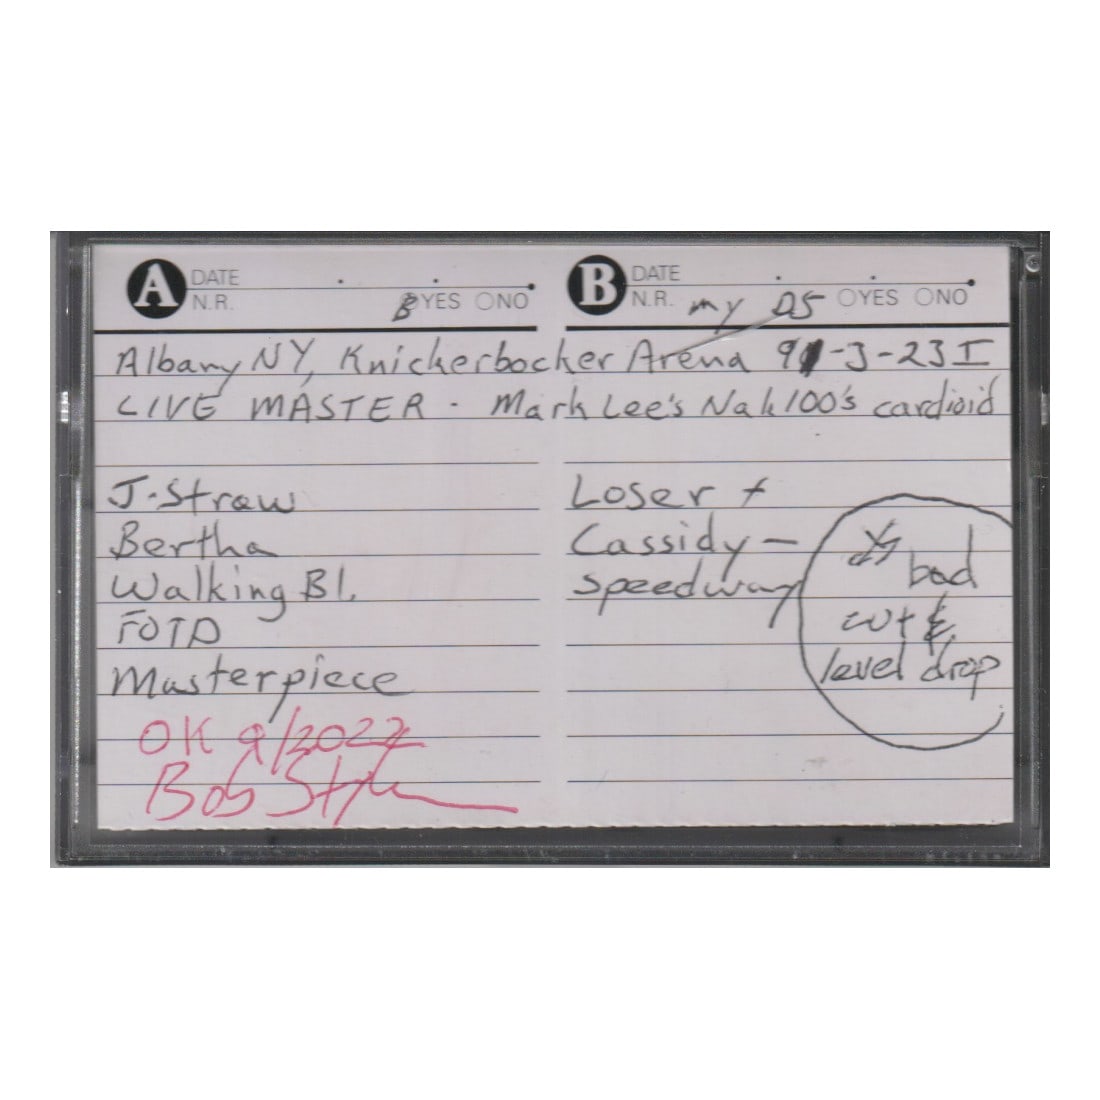 A DATE
N.R. B YES NO
B DATE
N.R. my D5 YES NO
Albany NY, Knickerbocker Arena 91-3-23 I
LIVE MASTER - Mark Lee's Nak100's cardioid
J. Straw
Bertha
Walking Bl.
FOTD
Masterpiece
OK 9/2022
Bob
Loser +
Cassidy -
Speedway
bad
cut &
level drop